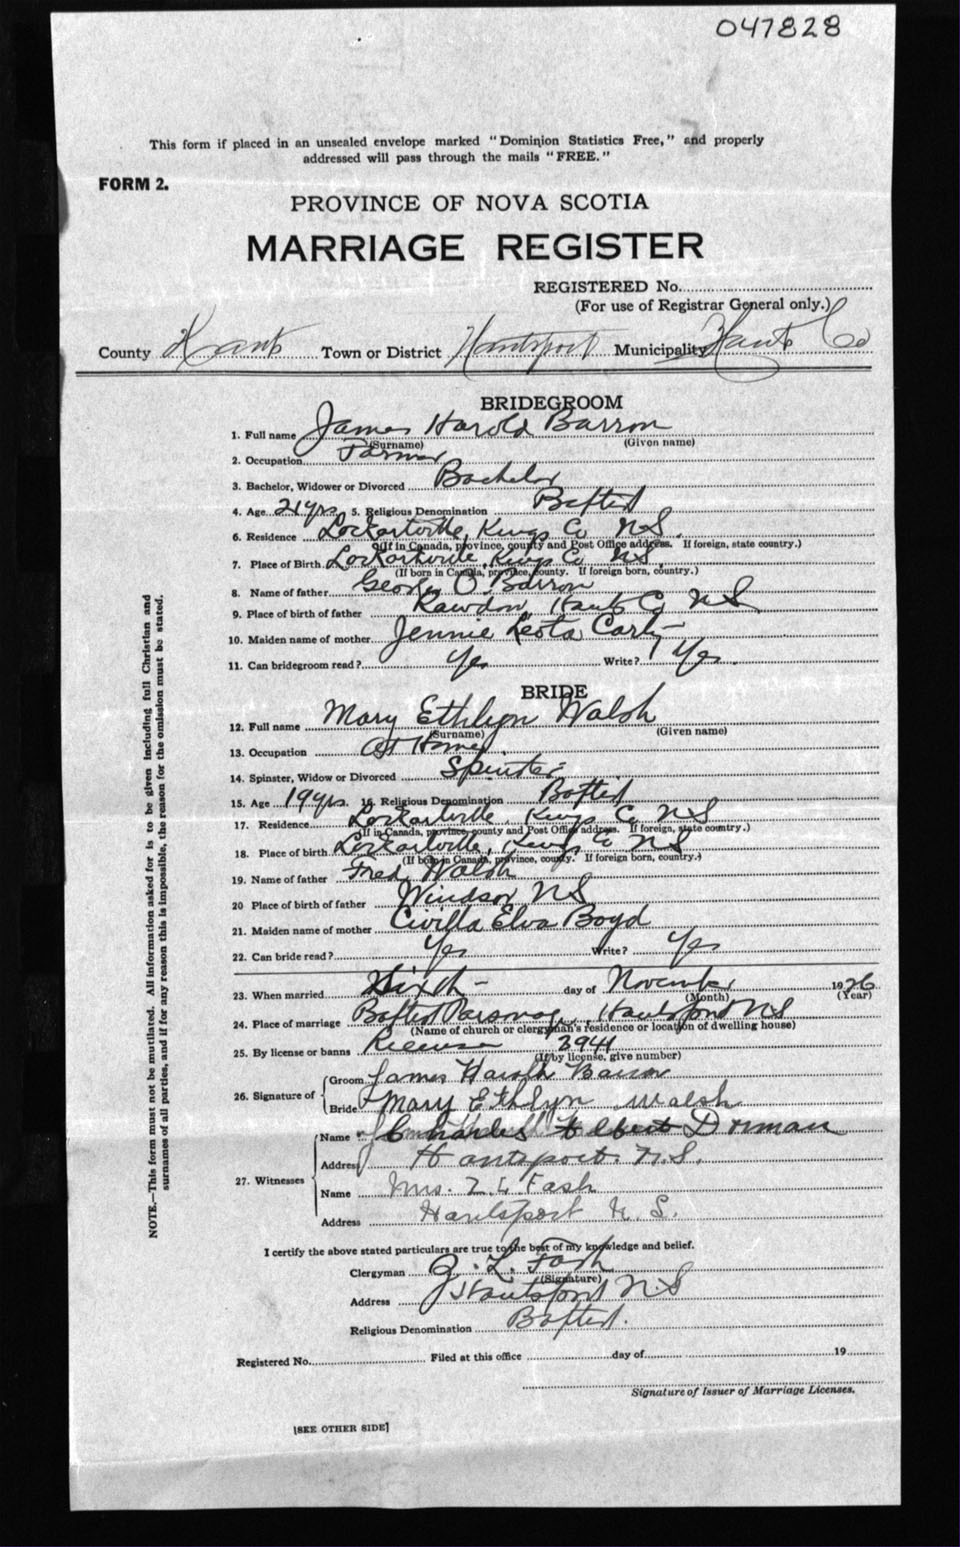 047828
This form if placed in an unsealed envelope marked "Dominion Statistics Free," and properly
addressed will pass through the mails "FREE."
FORM 2.
PROVINCE OF NOVA SCOTIA
MARRIAGE REGISTER
REGISTERED No.
(For use of Registrar General only.)
County Hants Town or District Hantsport Municipality Hants Co
BRIDEGROOM
1. Full name James Harold Barron
(Surname) (Given name)
2. Occupation Farmer
3. Bachelor, Widower or Divorced Bachelor
4. Age 21 yrs 5. Religious Denomination Baptist
6. Residence Lockartville, Kings Co NS.
(If in Canada, province, county and Post Office address. If foreign, state country.)
7. Place of Birth Lockartville, Kings Co NS.
(If born in Canada, province, county. If foreign born, country.)
8. Name of father George O. Barron
9. Place of birth of father Rawdon, Hants Co NS
10. Maiden name of mother Jennie Leota
11. Can bridegroom read? Yes Write? Yes.
BRIDE
12. Full name Mary Ethlyn Walsh
(Surname) (Given name)
13. Occupation At Home
14. Spinster, Widow or Divorced Spinster
15. Age 19 yrs. 16. Religious Denomination Baptist
17. Residence Lockartville, Kings Co NS
(If in Canada, province county and Post Office address. If foreign, state country.)
18. Place of birth Lockartville, Kings Co NS
(If born in Canada, province, county. If foreign born, country.)
19. Name of father Fred Walsh
20 Place of birth of father Windsor NS
21. Maiden name of mother Civilla Elva Boyd
22. Can bride read? Yes Write? Yes
23. When married Sixth - day of November 1926
(Month) (Year)
24. Place of marriage Baptist Parsonage, Hantsport NS
(Name of church or clergyman's residence or location of dwelling house)
25. By license or banns License 2941
(If by license, give number)
26. Signature of Groom James Harold Barron
Bride Mary Ethlyn Walsh
27. Witnesses
Name Charles Elbert Dorman
Address Hantsport N.S.
Name Mrs. Z L Fash
Address Hantsport N. S.
I certify the above stated particulars are true to the best of my knowledge and belief.
Clergyman Z. L. Fash
(Signature)
Address Hantsport NS
Religious Denomination Baptist.
Registered No. Filed at this office day of 19
Signature of Issuer of Marriage Licenses.
[SEE OTHER SIDE]
NOTE.—This form must not be mutilated. All information asked for is to be given including full Christian and
surnames of all parties, and if for any reason this is impossible, the reason for the omission must be stated.